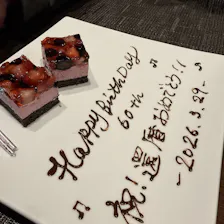 Happy Birthday
60th
祝!還暦おめでとう!!
-2026.3.29-